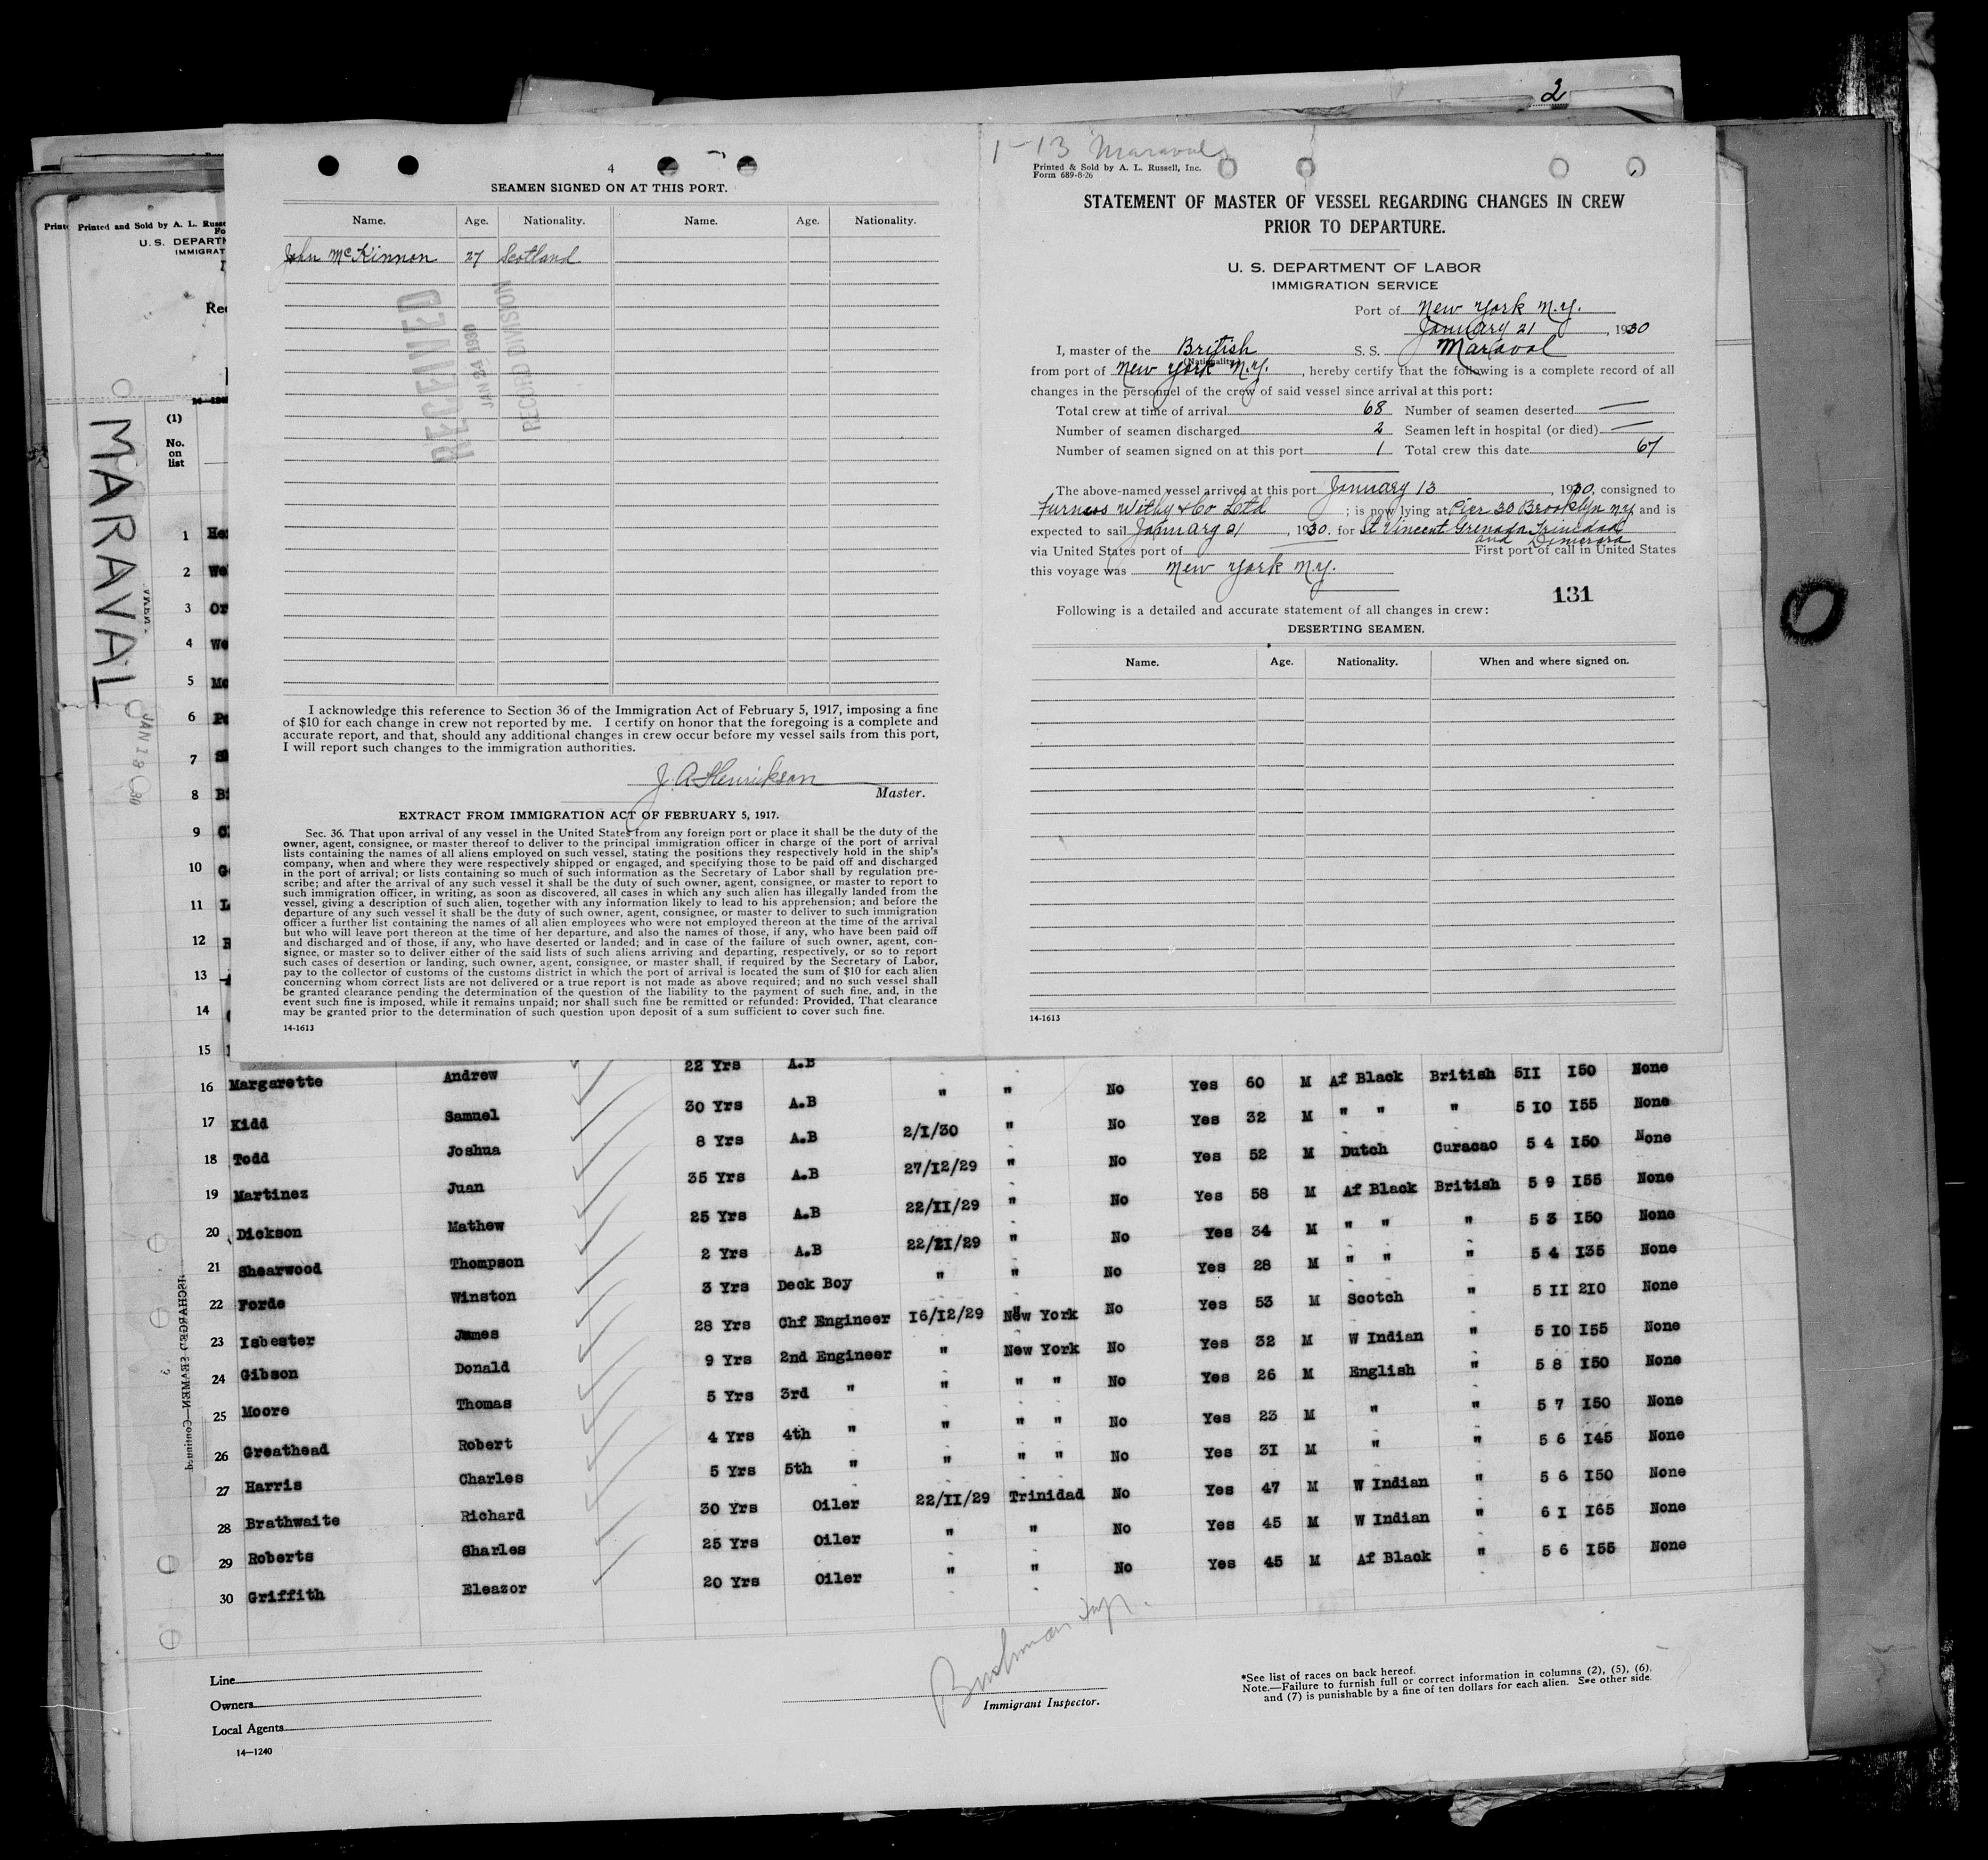 2
4
SEAMEN SIGNED ON AT THIS PORT.
Name. Age. Nationality. Name. Age. Nationality.
John McKinnon 27 Scotland
RECEIVED
JAN 21 1930
RECORD DIVISION
I acknowledge this reference to Section 36 of the Immigration Act of February 5, 1917, imposing a fine
of $10 for each change in crew not reported by me. I certify on honor that the foregoing is a complete and
accurate report, and that, should any additional changes in crew occur before my vessel sails from this port,
I will report such changes to the immigration authorities.
J. A. Henrickson
Master.
EXTRACT FROM IMMIGRATION ACT OF FEBRUARY 5, 1917.
Sec. 36. That upon arrival of any vessel in the United States from any foreign port or place it shall be the duty of the
owner, agent, consignee, or master thereof to deliver to the principal immigration officer in charge of the port of arrival
lists containing the names of all aliens employed on such vessel, stating the positions they respectively hold in the ship's
company, when and where they were respectively shipped or engaged, and specifying those to be paid off and discharged
in the port of arrival; or lists containing so much of such information as the Secretary of Labor shall by regulation pre-
scribe; and after the arrival of any such vessel it shall be the duty of such owner, agent, consignee, or master to report to
such immigration officer, in writing, as soon as discovered, all cases in which any such alien has illegally landed from the
vessel, giving a description of such alien, together with any information likely to lead to his apprehension; and before the
departure of any such vessel it shall be the duty of such owner, agent, consignee, or master to deliver to such immigration
officer a further list containing the names of all alien employees who were not employed thereon at the time of the arrival
but who will leave port thereon at the time of her departure, and also the names of those, if any, who have been paid off
and discharged and of those, if any, who have deserted or landed; and in case of the failure of such owner, agent, con-
signee, or master so to deliver either of the said lists of such aliens arriving and departing, respectively, or so to report
such cases of desertion or landing, such owner, agent, consignee, or master shall, if required by the Secretary of Labor,
pay to the collector of customs of the customs district in which the port of arrival is located the sum of $10 for each alien
concerning whom correct lists are not delivered or a true report is not made as above required; and no such vessel shall
be granted clearance pending the determination of the question of the liability to the payment of such fine, and, in the
event such fine is imposed, while it remains unpaid; nor shall such fine be remitted or refunded: Provided, That clearance
may be granted prior to the determination of such question upon deposit of a sum sufficient to cover such fine.
14-1613
1-13 Maraval
Printed & Sold by A. L. Russell, Inc.
Form 689-8-26
STATEMENT OF MASTER OF VESSEL REGARDING CHANGES IN CREW
PRIOR TO DEPARTURE.
U. S. DEPARTMENT OF LABOR
IMMIGRATION SERVICE
Port of New York N.Y.
January 21, 1930
I, master of the British S. S. Maraval
(Nationality.)
from port of New York N.Y., hereby certify that the following is a complete record of all
changes in the personnel of the crew of said vessel since arrival at this port:
Total crew at time of arrival 68 Number of seamen deserted —
Number of seamen discharged 2 Seamen left in hospital (or died) —
Number of seamen signed on at this port 1 Total crew this date 67
The above-named vessel arrived at this port January 13, 1930, consigned to
Furness Withy & Co Ltd; is now lying at Pier 30 Brooklyn NY and is
expected to sail January 21, 1930. for St Vincent Grenada Trinidad
and Dimerara
via United States port of First port of call in United States
this voyage was New York N.Y.
131
Following is a detailed and accurate statement of all changes in crew:
DESERTING SEAMEN.
Name. Age. Nationality. When and where signed on.
14-1613
Printed and Sold by A. L. Russe
U. S. DEPARTM
IMMIGRAT
MARAVAL
JAN 18 30
(1)
No.
on
list
1
2
3
4
5
6
7
8
9
10
11
12
13
14
15 22 Yrs A.B
16 Margarette Andrew " " No Yes 60 M Af Black British 5II I50 None
30 Yrs A.B
17 Kidd Samuel 2/I/30 " No Yes 32 M " " " 5 IO I55 None
8 Yrs A.B
18 Todd Joshua 27/12/29 " No Yes 52 M Dutch Curacao 5 4 I50 None
35 Yrs A.B
19 Martinez Juan 22/II/29 " No Yes 58 M Af Black British 5 9 I55 None
25 Yrs A.B
20 Dickson Mathew 22/II/29 " No Yes 34 M " " " 5 3 I50 None
2 Yrs A.B
21 Shearwood Thompson " " No Yes 28 M " " " 5 4 I35 None
3 Yrs Deck Boy
22 Forde Winston 16/12/29 New York No Yes 53 M Scotch " 5 II 210 None
28 Yrs Chf Engineer
23 Isbester James " New York No Yes 32 M W Indian " 5 IO I55 None
9 Yrs 2nd Engineer
24 Gibson Donald " " " No Yes 26 M English " 5 8 I50 None
5 Yrs 3rd "
25 Moore Thomas " " " No Yes 23 M " " 5 7 I50 None
4 Yrs 4th "
26 Greathead Robert " " " No Yes 3I M " " 5 6 I45 None
5 Yrs 5th "
27 Harris Charles 22/II/29 Trinidad No Yes 47 M W Indian " 5 6 I50 None
30 Yrs Oiler
28 Brathwaite Richard " " No Yes 45 M W Indian " 6 I I65 None
25 Yrs Oiler
29 Roberts Charles " " No Yes 45 M Af Black " 5 6 I55 None
20 Yrs Oiler
30 Griffith Eleazor
DISCHARGED SEAMEN—Continued
Line
Owners
Local Agents
14—1240
Immigrant Inspector.
*See list of races on back hereof.
Note.—Failure to furnish full or correct information in columns (2), (5), (6),
and (7) is punishable by a fine of ten dollars for each alien. See other side.